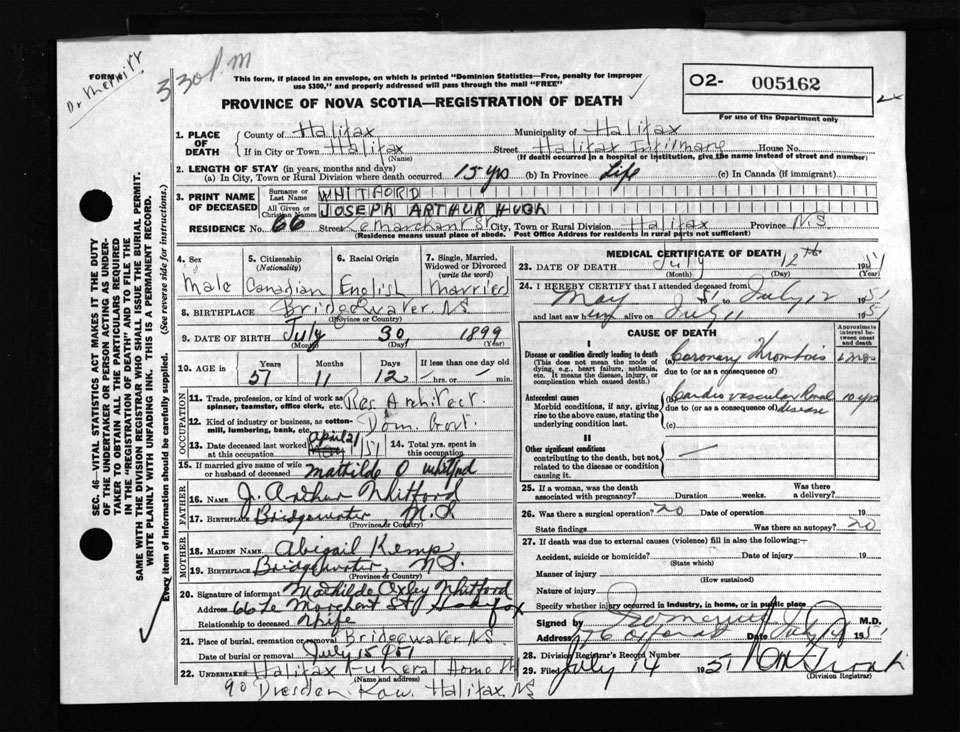 FORM
Dr Merritt
330 PM
This form, if placed in an envelope, on which is printed "Dominion Statistics—Free, penalty for improper
use $300," and properly addressed will pass through the mail "FREE"
PROVINCE OF NOVA SCOTIA—REGISTRATION OF DEATH
O2- 005162
For use of the Department only
SEC. 46—VITAL STATISTICS ACT MAKES IT THE DUTY
OF THE UNDERTAKER OR PERSON ACTING AS UNDER-
TAKER TO OBTAIN ALL THE PARTICULARS REQUIRED
IN THE "REGISTRATION OF DEATH" AND TO FILE THE
SAME WITH THE DIVISION REGISTRAR WHO SHALL ISSUE THE BURIAL PERMIT.
WRITE PLAINLY WITH UNFADING INK. THIS IS A PERMANENT RECORD.
Every item of information should be carefully supplied. (See reverse side for instructions.)
1. PLACE OF DEATH
County of Halifax Municipality of Halifax
If in City or Town Halifax (Name) Street Halifax Infirmary House No.
(If death occurred in a hospital or institution, give the name instead of street and number)
2. LENGTH OF STAY (in years, months and days)
(a) In City, Town or Rural Division where death occurred 15 yrs (b) In Province Life (c) In Canada (if immigrant)
3. PRINT NAME OF DECEASED
Surname or Last Name WHITFORD
All Given or Christian Names JOSEPH ARTHUR HUGH
RESIDENCE No. 66 Street Le Marchant St City, Town or Rural Division Halifax Province N.S.
(Residence means usual place of abode. Post Office Address for residents in rural parts not sufficient)
4. Sex Male
5. Citizenship (Nationality) Canadian
6. Racial Origin English
7. Single, Married, Widowed or Divorced (write the word) Married
8. BIRTHPLACE Bridgewater, NS
(Province or Country)
9. DATE OF BIRTH July 30 1899
(Month) (Day) (Year)
10. AGE in Years Months Days If less than one day old
51 11 12 hrs. or min.
OCCUPATION
11. Trade, profession, or kind of work as spinner, teamster, office clerk, etc. Res Architect.
12. Kind of industry or business, as cotton-mill, lumbering, bank, etc. Dom. Govt.
13. Date deceased last worked at this occupation April 21/51
14. Total yrs. spent in this occupation
15. If married give name of wife or husband of deceased Mathilde O Whitford
FATHER
16. NAME J. Arthur Whitford
17. BIRTHPLACE Bridgewater N.S
(Province or Country)
MOTHER
18. MAIDEN NAME Abigail Kemp
19. BIRTHPLACE Bridgewater, NS.
(Province or Country)
20. Signature of informant Mathilde Oxley Whitford
Address 66 Le Marchant St Halifax
Relationship to deceased Wife
21. Place of burial, cremation or removal Bridgewater NS
Date of burial or removal July 15 1951
22. UNDERTAKER Halifax Funeral Home
(Name and address)
90 Dresden Row. Halifax, NS
MEDICAL CERTIFICATE OF DEATH
23. DATE OF DEATH July 12th 1951
(Month) (Day) (Year)
24. I HEREBY CERTIFY that I attended deceased from
May 1951 to July 12 1951
and last saw him alive on July 11 1951
CAUSE OF DEATH
Approximate interval between onset and death
I
Disease or condition directly leading to death
(This does not mean the mode of dying, e.g., heart failure, asthenia, etc. It means the disease, injury, or complication which caused death.)
(a) Coronary Thrombosis
due to (or as a consequence of)
Antecedent causes
Morbid conditions, if any, giving rise to the above cause, stating the underlying condition last.
(b) Cardio vascular Renal disease 10 yrs
due to (or as a consequence of)
(c)
II
Other significant conditions
contributing to the death, but not related to the disease or condition causing it.
25. If a woman, was the death associated with pregnancy? Duration weeks. Was there a delivery?
26. Was there a surgical operation? no Date of operation 19
State findings Was there an autopsy? no
27. If death was due to external causes (violence) fill in also the following:—
Accident, suicide or homicide? Date of injury 19
(State which)
Manner of injury
(How sustained)
Nature of injury
Specify whether injury occurred in industry, in home, or in public place
Signed by M.D.
Address Date July 1951
28. Division Registrar's Record Number
29. Filed July 14 1951
(Division Registrar)